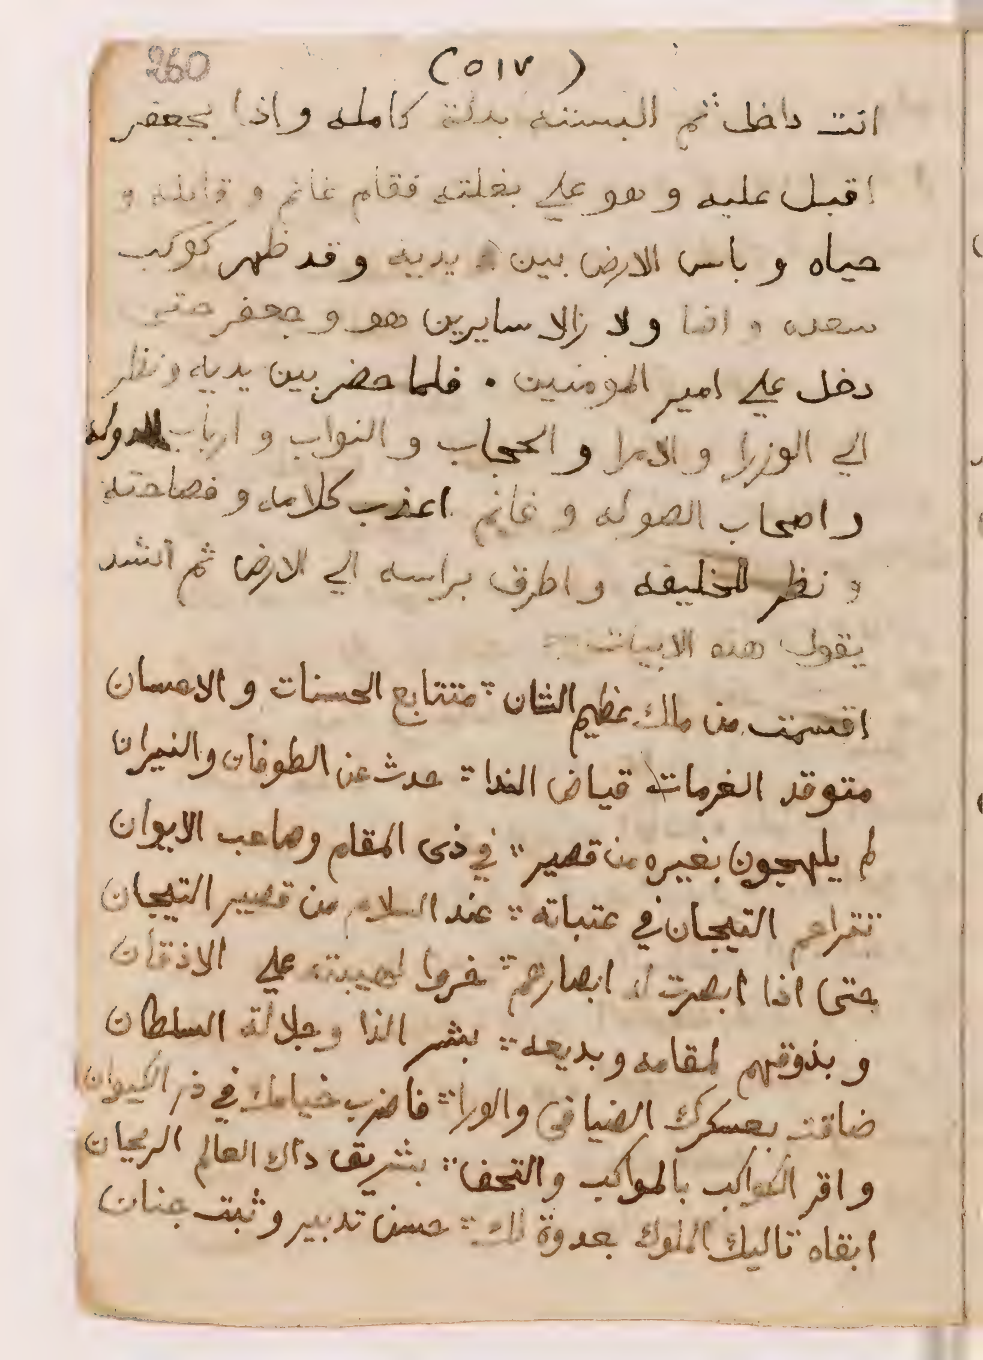 260
(٥١٧)
انت داخل ثم البسته بدلة كامله و اذا بجعفر
اقبل عليه و هو علي بغلته فقام غانم و قابله و
حياه و باس الارض بين يديه و قد ظهر كوكب
سعده و اضا و لا زالا سايرين هو و جعفر حتي
دخل علي امير المومنين . فلما حضر بين يديه و نظر
الي الوزرا و الامرا و الحجاب و النواب و ارباب الدوله
و اصحاب الصوله و غانم اعذب كلامه و فصاحته
و نظر للخليفه و اطرق براسه الي الارض ثم انشد
يقول هذه الابيات
اقسمت من ملك عظيم الشان ∴ متتابع الحسنات و الاحسان
متوقد الغرمات قياض الندا ∴ حدث عن الطوفان والنيران
لم يلهجون بغيره من قصير ∴ في ذى المقام وصاعب الايوان
التيجان في عتباته ∴ عند السلام من قصير التيجان
حتى اذا ابصرت له ابصارهم ∴ خروا لهيبته علي الاذقان
و بذوقهم لمقامه و بديعه ∴ بشر الذا و جلالة السلطان
ضاقت بعسكرك الضيافى والورا ∴ فاضرب خيامك في ذر الكيوان
و اقر الكواكب بالمواكب والتحف ∴ بشريق داك العالم الريحان
ابقاه تاليك الملوك بعدوة لك ∴ حسن تدبير و ثبت جنان